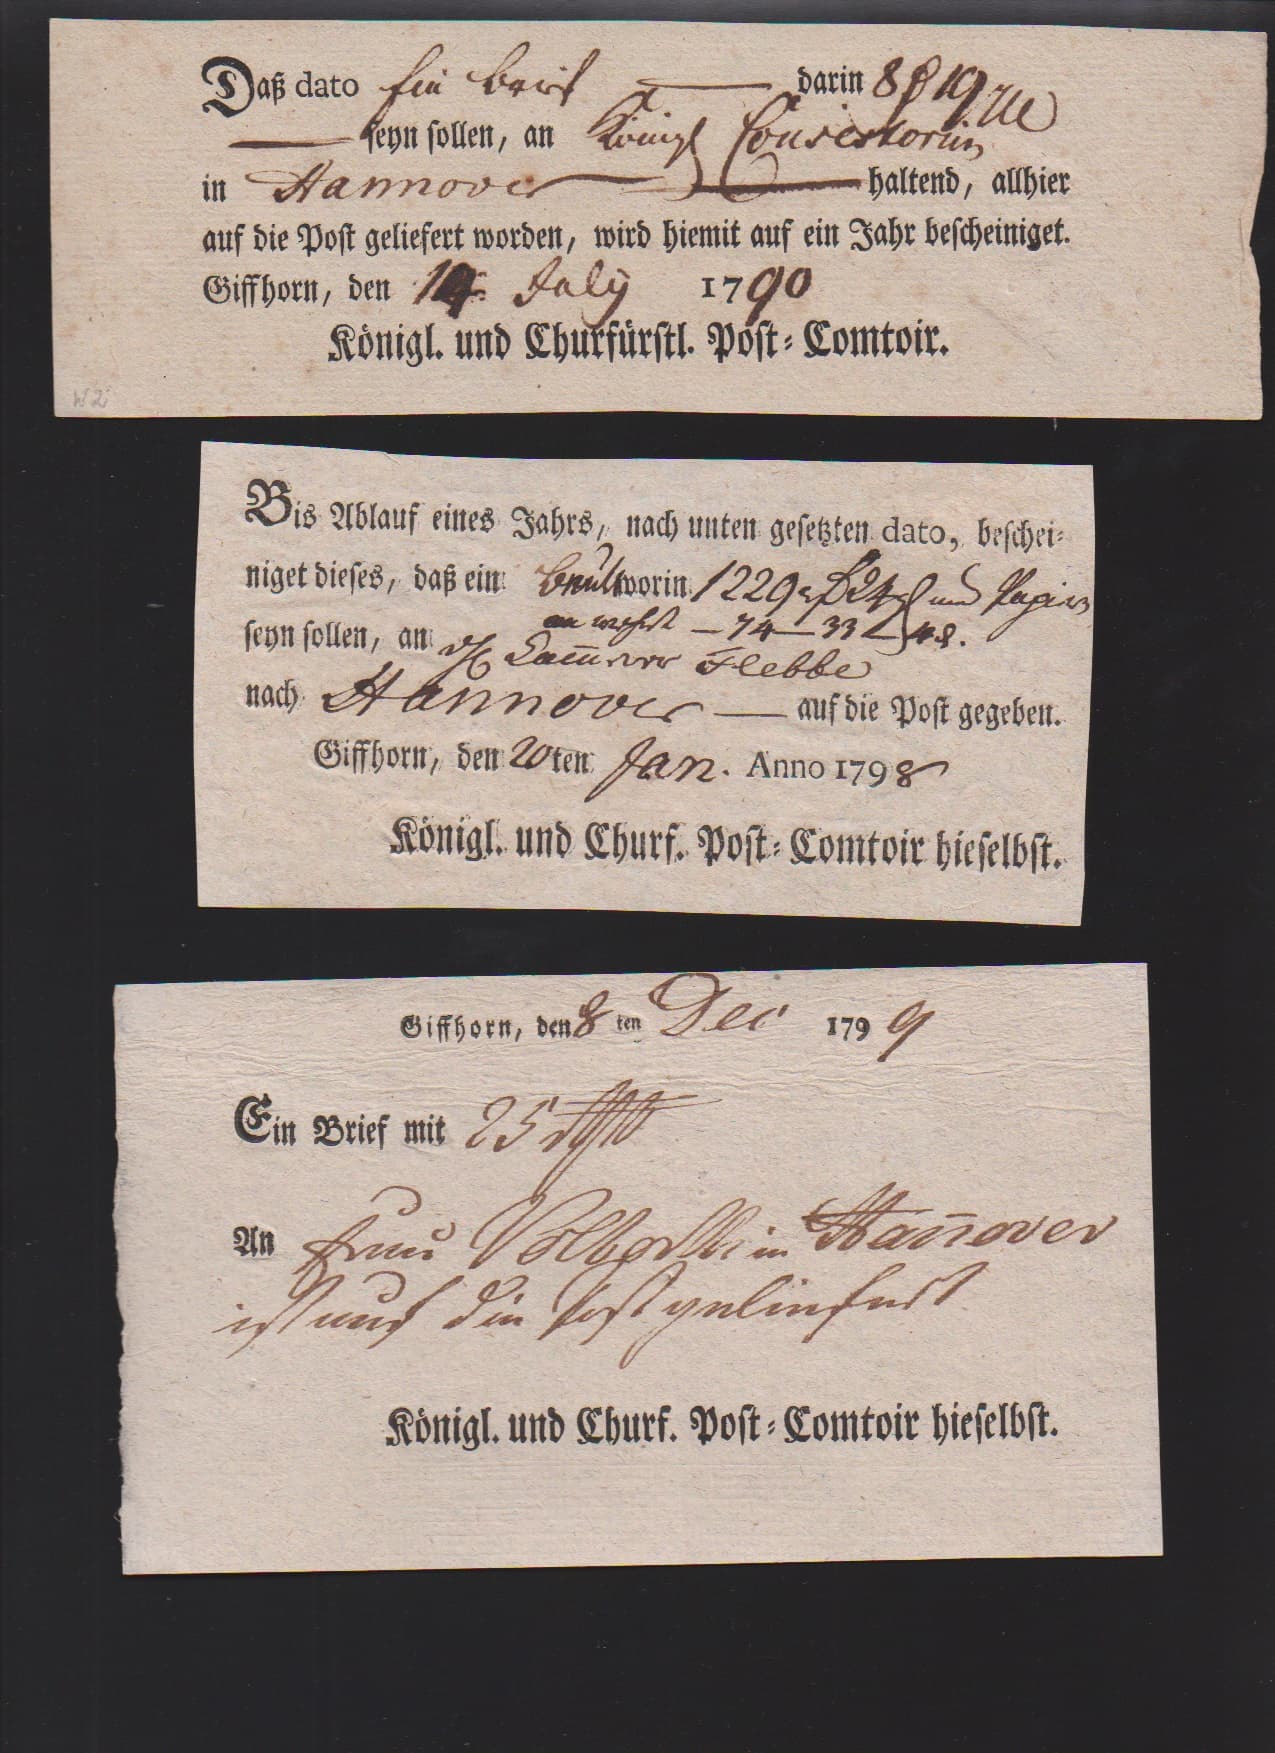 Daß dato Ein Brief darin 8 ₰ 19
seyn sollen, an Königl Consistorium
in Hannover haltend, allhier
auf die Post geliefert worden, wird hiemit auf ein Jahr bescheiniget.
Giffhorn, den 14. July 1790
Königl. und Churfürstl. Post-Comtoir.
W 2
Bis Ablauf eines Jahrs, nach unten gesetzten dato, beschei-
niget dieses, daß ein Beutel worin 1229 und Papier
– 74 – 33
seyn sollen, an Flebbe
nach Hannover auf die Post gegeben.
Giffhorn, den 20ten Jan. Anno 1798
Königl. und Churf. Post-Comtoir hieselbst.
Giffhorn, den 8 ten Dec 1799
Ein Brief mit 25
An Frau in Hannover
ist auf die Post geliefert
Königl. und Churf. Post-Comtoir hieselbst.